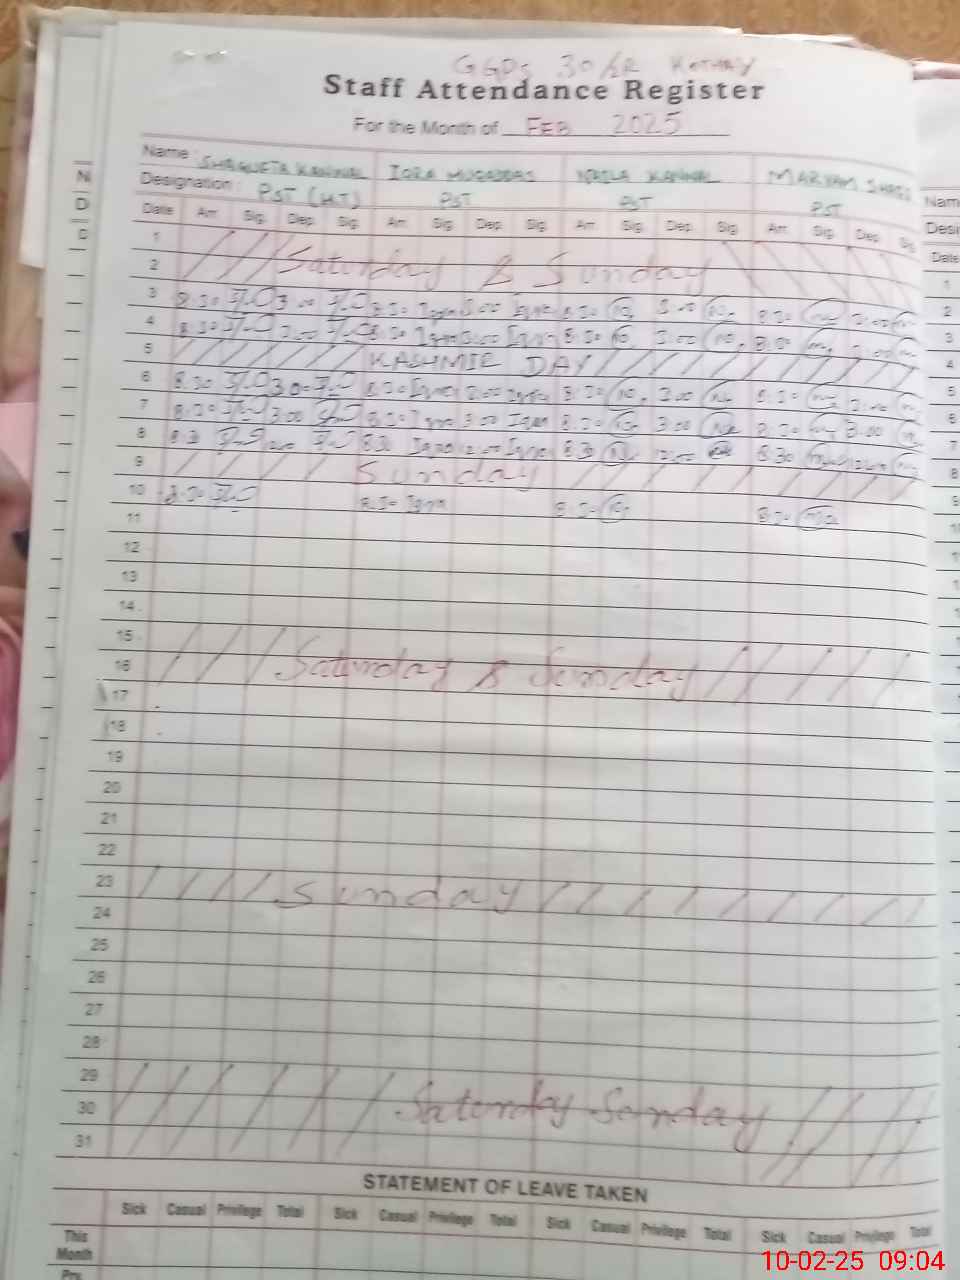 GGPS 30/2R KOTHAY
Staff Attendance Register
For the Month of FEB 2025
Name : SHAGUFTA KANWAL IQRA MUQADDAS KANWAL MARYAM
Designation : PST (HT) PST PST PST
Date Arr. Sig. Dep. Sig. Arr. Sig. Dep. Sig. Arr. Sig. Dep. Sig. Arr. Sig. Dep. Sig.
1
2 Saturday & Sunday
3 8.30 3.00 8.30 Iqra 3.00 Iqra 8.30 3.00 8.30 3.00
4 8.30 3.00 8.30 Iqra 3.00 Iqra 8.30 3.00 8.30 3.00
5 KASHMIR DAY
6 8.30 3.00 8.30 Iqra 3.00 Iqra 8.30 3.00 8.30 3.00
7 8.30 3.00 8.30 Iqra 3.00 Iqra 8.30 3.00 8.30 3.00
8 8.30 12.00 8.30 Iqra 12.00 Iqra 8.30 12.00 8.30 12.00
9 Sunday
10 8.30 8.30 Iqra 8.30 8.30
11
12
13
14
15
16 Saturday & Sunday
17
18
19
20
21
22
23 Sunday
24
25
26
27
28
29
30 Saturday Sunday
31
STATEMENT OF LEAVE TAKEN
Sick Casual Privilege Total Sick Casual Privilege Total Sick Casual Privilege Total Sick Casual Privilege Total
This
Month
Prv.
10-02-25 09:04